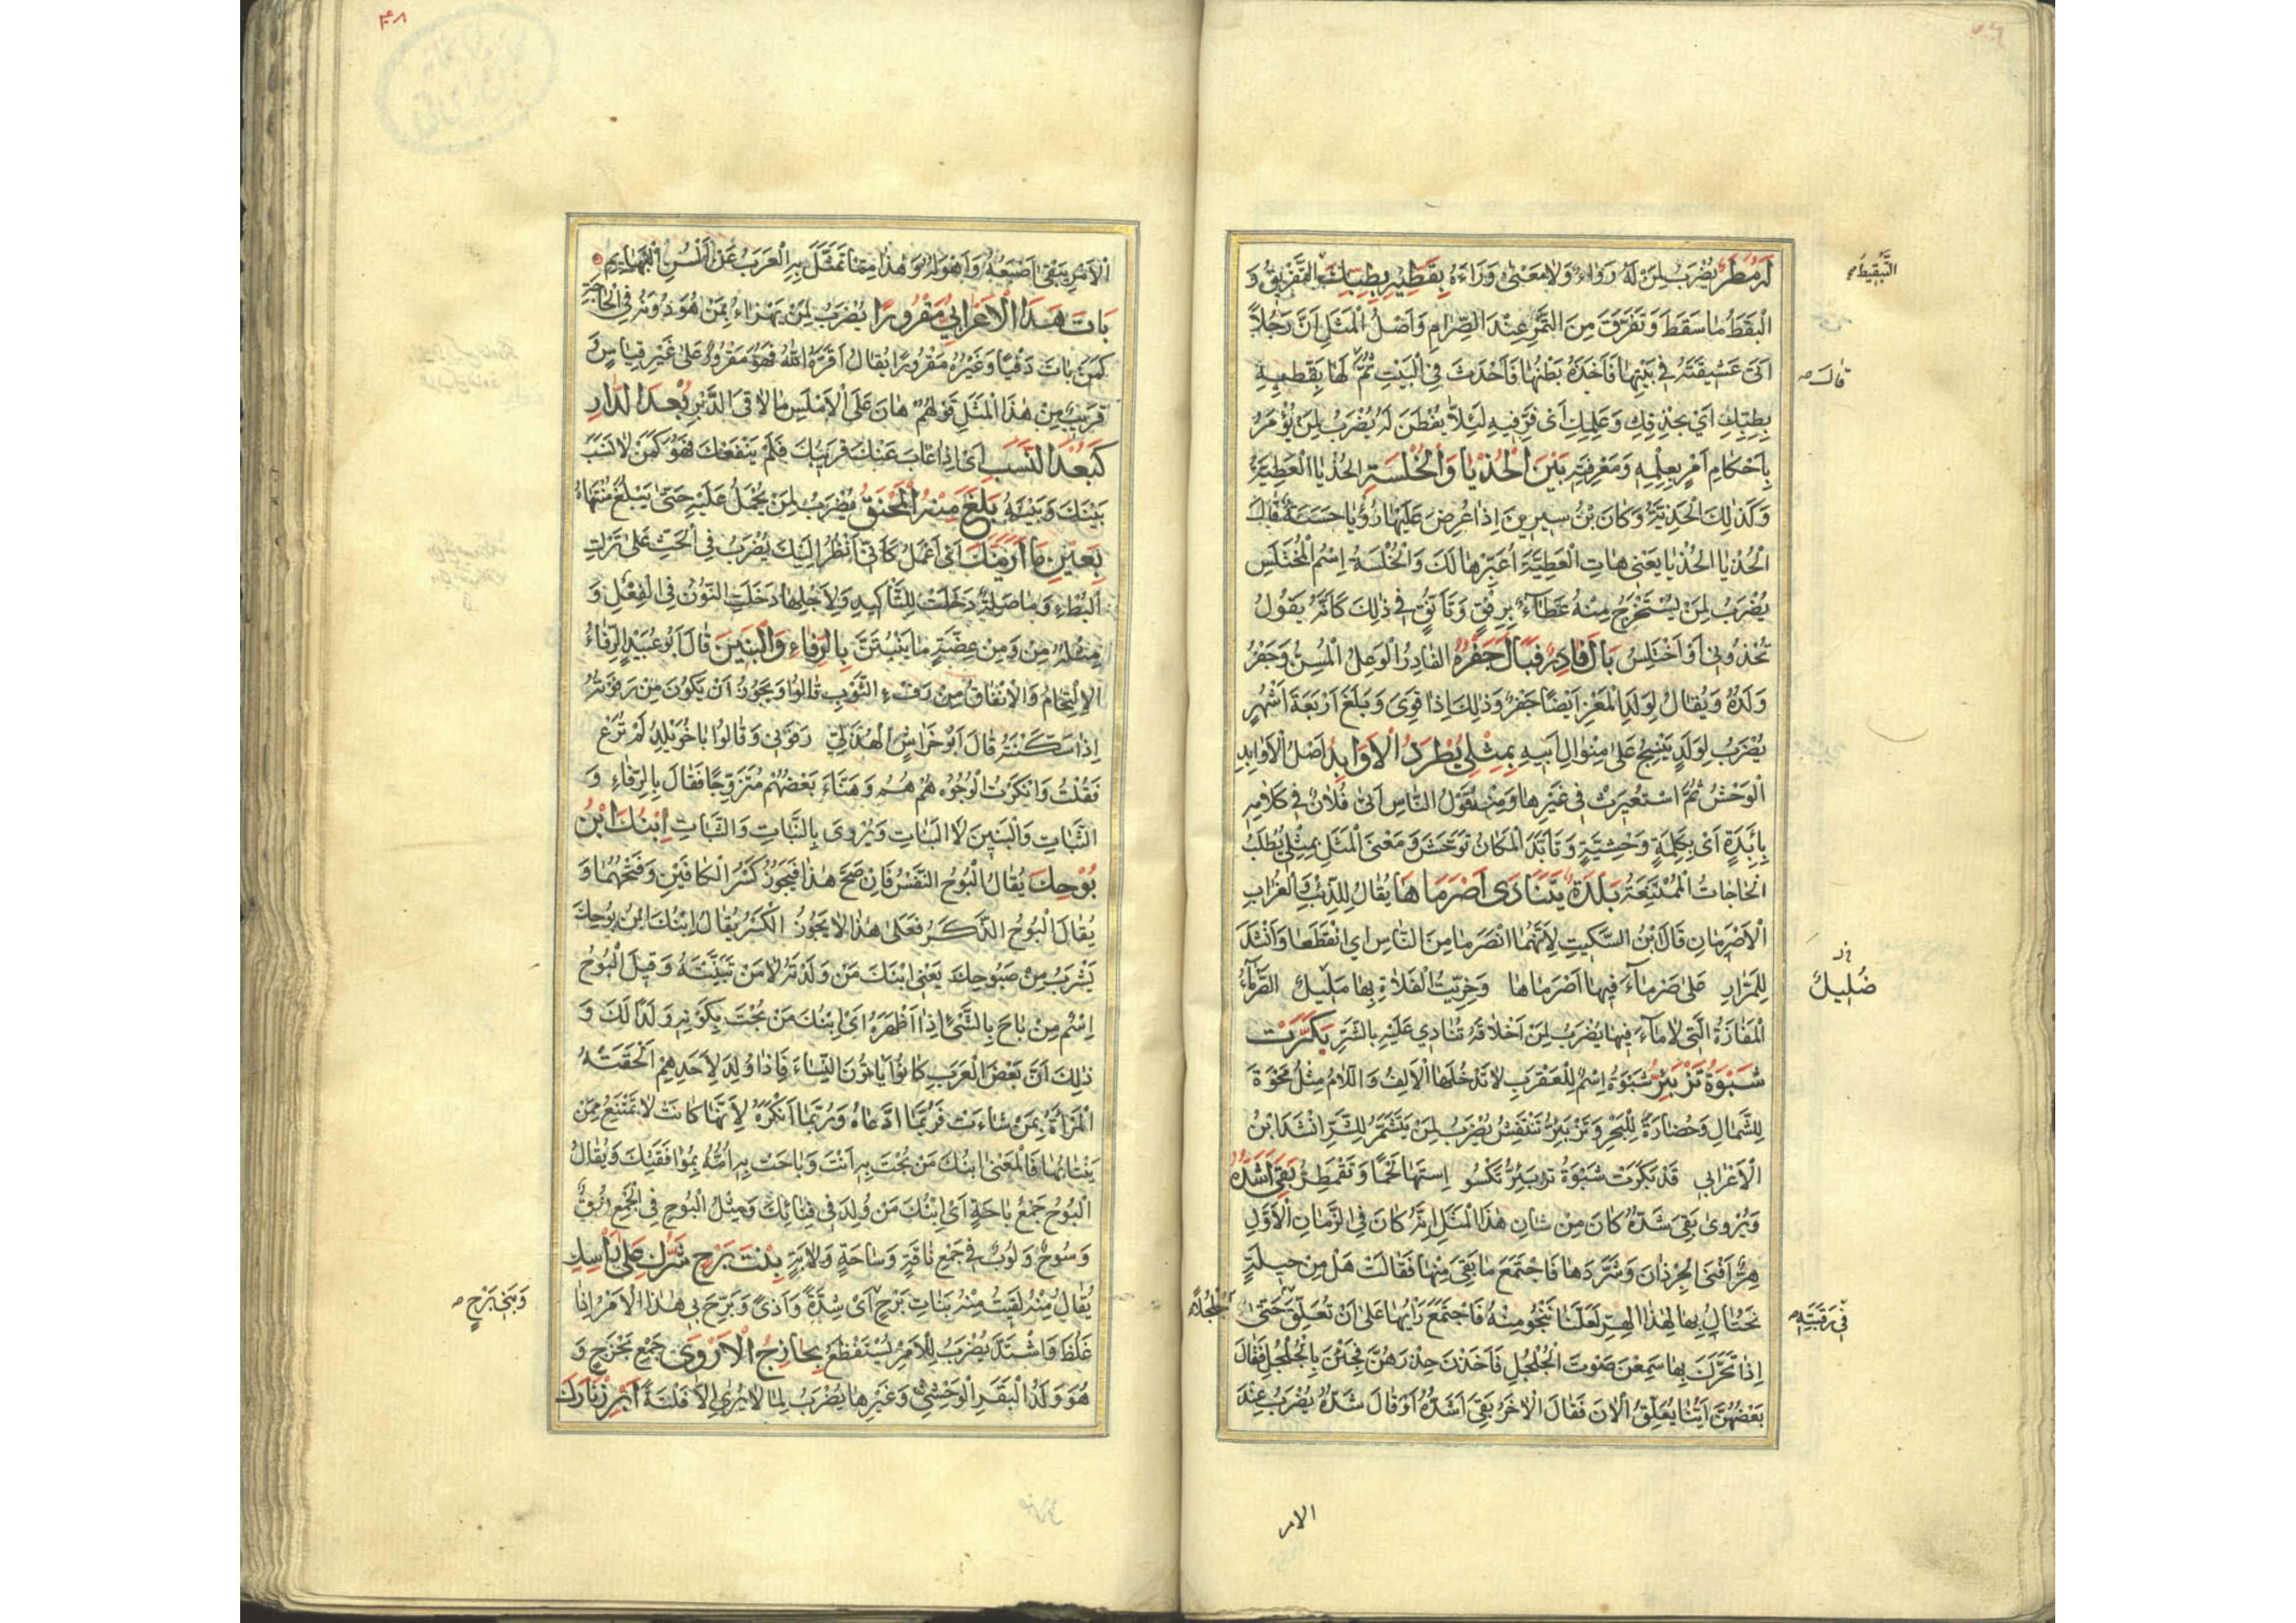 التَّبْقِيطُ
لَا مَطَرَ يُضْرَبُ لِمَنْ لَهُ رُوَاءٌ وَلَا مَعْنىٰ وَرَاءَهُ بَقِّطِيهِ بِطِبِّكِ التَّفْرِيقُ وَ
الْبَقَطُ مَا سَقَطَ وَتَفَرَّقَ مِنَ التَّمْرِ عِنْدَ الصِّرَامِ وَاَصْلُ الْمَثَلِ اَنَّ رَجُلاً
اَتىٰ عَشِيقَتَهُ فِي بَيْتِهَا فَاَخَذَهُ بَطْنُهَا فَاَحْدَثَ فِي الْبَيْتِ ثُمَّ لَهَا بَقِّطِيهِ
قَالَ
بِطِبِّكِ اَيْ بِحِذْقِكِ وَعِلْمِكِ اَيْ فَرِّقِيهِ لِئَلاَّ يُفْطَنَ لَهُ يُضْرَبُ لِمَنْ يُؤْمَرُ
بِاِحْكَامِ اَمْرٍ بِعِلْمِهِ وَمَعْرِفَتِهِ بَيْنَ الْحُذْيَا وَالْخُلْسَةِ الحُذْيَا الْعَطِيَّةُ
وَكَذٰلِكَ الْحَذِيَّةُ وَكَانَ بْنُ سِيرِينَ اِذَا عُرِضَ عَلَيْهَا رُؤْيَا حَسَنَةٌ قَالَ
الْحُذْيَا الحُذْيَا يَعْنِي هَاتِ الْعَطِيَّةَ اُعَبِّرْهَا لَكَ وَالْخُلْسَةُ اِسْمُ الْمُخْتَلَسِ
يُضْرَبُ لِمَنْ يُسْتَخْرَجُ مِنْهُ عَطَاءٌ بِرِفْقٍ وَتَاَنُّقٍ فِي ذٰلِكَ كَاَنَّهُ يَقُولُ
تُحْذُونِي اَوْ اَخْتَلِسُ بَالَ فَادِرٌ فَبَالَ جَفْرُهُ الفَادِرُ الْوَعِلُ الْمُسِنُّ وَجَفْرُهُ
وَلَدُهُ وَيُقَالُ لِوَلَدِ الْمَعْزِ اَيْضًا جَفْرٌ وَذٰلِكَ اِذَا قَوِيَ وَبَلَغَ اَرْبَعَةَ اَشْهُرٍ
يُضْرَبُ لِوَلَدٍ يَنْسِجُ عَلىٰ مِنْوَالِ اَبِيهِ بِمِثْلِي يُطْرَدُ الْاَوَابِدُ اَصْلُ الْاَوَابِدِ
الْوَحْشُ ثُمَّ اسْتُعِيرَتْ فِي غَيْرِهَا وَمِنْهُ قَوْلُ النَّاسِ اَتىٰ فُلَانٌ فِي كَلَامِهِ
بِآبِدَةٍ اَيْ بِكَلِمَةٍ وَحْشِيَّةٍ وَتَاَبَّدَ الْمَكَانُ تَوَحَّشَ وَمَعْنَى الْمَثَلِ بِمِثْلِي يُطْلَبُ
الحَاجَاتُ الْمُمْتَنِعَةُ بَلْدَةٌ يَتَنَادَى اَصْرَمَاهَا يُقَالُ لِلذِّئْبِ وَالْغُرَابِ
الْاَصْرَمَانِ قَالَ ابْنُ السِّكِّيتِ لِاَنَّهُمَا انْصَرَمَا مِنَ النَّاسِ اي انْقَطَعَا وَاَنْشَدَ
لِلْمَرَّارِ عَلىٰ صَرْمَاءَ فِيهَا اَصْرَمَاهَا وَخِرِّيتُ الْفَلَاةِ بِهَا مَلِيكُ الصَّرْمَاءُ
ضُلِيلُ
الْمَفَازَةُ الَّتِي لَا مَاءَ فِيهَا يُضْرَبُ لِمَنْ اَخْلَاقُهُ تُنَادِي عَلَيْهِ بِالشَّرِّ بَكَرَتْ
شَبْوَةُ تَزْبَئِرُّ شَبْوَةُ اِسْمٌ لِلْعَقْرَبِ لَا تَدْخُلُهَا الْاَلِفُ وَاللَّامُ مِثْلُ مَحْوَةَ
لِلشَّمَالِ وَخُضَارَةُ لِلْبَحْرِ وَتَزْبَئِرُّ تَنْتَفِشُ يُضْرَبُ لِمَنْ يَتَشَمَّرُ لِلشَّرِّ اَنْشَدَ ابْنُ
الْاَعْرَابِي قَدْ بَكَرَتْ شَبْوَةُ تزبئِرُّ تَكْسُو اسْتَهَا لَحْمًا وَتَقْمَطِرُّ بَقِيَ اَشَدُّهُ
وَيُرْوىٰ بَقِيَ شَدُّهُ كَانَ مِنْ شَانِ هٰذَا الْمَثَلِ اِنَّهُ كَانَ فِي الزَّمَانِ الْاَوَّلِ
هِرٌّ اَفْنَى الجِرْذَانَ وَشَرَّدَهَا فَاجْتَمَعَ مَا بَقِيَ مِنْهَا فَقَالَتْ هَلْ مِنْ حِيلَةٍ
نَحْتَالُ بِهَا لِهٰذَا الْهِرِّ لَعَلَّنَا نَنْجُو مِنْهُ فَاجْتَمَعَ رَاْيُهَا عَلىٰ اَنْ تُعَلِّقَ حَتّىٰ
فِي رَقَبَتِهِ
جُلْجُلاً
اِذَا تَحَرَّكَ بِهَا سَمِعْنَ صَوْتَ الْجُلْجُلِ فَاَخَذْنَ حِذْرَهُنَّ فَجِئْنَ بِالْجُلْجُلِ فَقَالَ
بَعْضُهُنَّ اَيُّنَا يُعَلِّقُ الْآنَ فَقَالَ الْاٰخَرُ بَقِيَ اَشَدُّهُ اَوْ قَالَ شَدُّهُ يُضْرَبُ عِنْدَ
الامر
٤٨
الْاَمْرِ يَبْقىٰ اَصْعَبُهُ وَاَهْوَلُهُ وَهٰذَا مِمَّا تَمَثَّلَ بِهِ الْعَرَبُ عَنْ اَلْسُنِ الْبَهَايِمِ
بَاتَ هَذَا الْاَعْرَابِيُّ مَقْرُورًا يُضْرَبُ لِمَنْ يَهْزَاءُ بِمَنْ هُوَ دُونَهُ فِي الْحَاجَةِ
كَمَنْ بَاتَ دَفِيًا وَغَيْرُهُ مَقْرُورًا يُقَالُ اَقَرَّهُ اللهُ فَهُوَ مَقْرُورٌ عَلىٰ غَيْرِ قِيَاسٍ وَ
قَرِيبٌ مِنْ هٰذَا الْمَثَلِ قَوْلُهُمْ هَانَ عَلَى الْاَمْلَسِ مَا لَاقَى الدَّبِرُ بُعْدُ الدَّارِ
كَبُعْدِ النَّسَبِ اَيْ اِذَا غَابَ عَنْكَ قَرِيبُكَ فَلَمْ يَنْفَعْكَ فَهُوَ كَمَنْ لَا نَسَبَ
بَيْنَكَ وَبَيْنَهُ بَلَغَ مِنْهُ الْمُخَنَّقُ يُضْرَبُ لِمَنْ يُحْمَلُ عَلَيْهِ حَتّىٰ يَبْلُغَ مُنْتَهَاهُ
بِعَيْنٍ مَا اَرَيَنَّكَ اَيْ اعْمَلْ كَاَنِّي اَنْظُرُ اِلَيْكَ يُضْرَبُ فِي الْحَثِّ عَلىٰ تَرْكِ
الْبُطْءِ وَمَا صِلَةٌ دَخَلَتْ لِلتَّاكِيدِ وَلِاَجْلِهَا دَخَلَتِ النُّونُ فِي الْفِعْلِ وَ
مِثْلُهُ مِنْ وَمِنْ عِضَةٍ مَا يَنْبُتَنَّ بِالرِّفَاءِ وَالْبَنِينَ قَالَ اَبُو عُبَيْدٍ الرِّفَاءُ
الْاِلْتِحَامُ وَالْاِتْفَاقُ مِنْ رَفْءِ الثَّوْبِ قَالُوا وَيَجُوزُ اَنْ يَكُونَ مِنْ رَفَوْتُهُ
اِذَا سَكَّنْتَهُ قَالَ اَبُو خَرَاشٍ الْهُذَلِيّ رَفَوْنِي وَقَالُوا يَا خُوَيْلِدُ لَمْ تُرَعْ
فَقُلْتُ وَاَنْكَرْتُ الْوُجُوهَ هُمْ هُمُ وَهَنَّاَ بَعْضُهُمْ مُتَزَوِّجًا فَقَالَ بِالرِّفَاءِ وَ
الثَّبَاتِ وَالْبَنِينَ لَا الْبَنَاتِ وَيُرْوى بِالنَّبَاتِ وَالثَّبَاتِ اِبْنُكَ ابْنُ
بُوْحِكَ يُقَالُ الْبُوحُ النَّفْسُ فَاِنْ صَحَّ هٰذَا فَيَجُوزُ كَسْرُ الْكَافَيْنِ وَفَتْحُهُمَا وَ
يُقَالَ الْبُوحُ الذَّكَرُ فَعَلىٰ هٰذَا لَا يَجُوزُ الْكَسْرُ يُقَالُ اِبْنُكَ ابْنُ بُوحِكَ
يَشْرَبُ مِنْ صَبُوحِكَ يَعْنِي ابْنُكَ مَنْ وَلَدْتَهُ لَا مَنْ تَبَنَّيْتَهُ وَقِيلَ الْبُوحُ
اِسْمٌ مِنْ بَاحَ بِالشَّيْءِ اِذَا اَظْهَرَهُ اَيْ اِبْنُكَ مَنْ بُحْتَ بِكَوْنِهِ وَلَدًا لَكَ وَ
ذٰلِكَ اَنَّ بَعْضَ الْعَرَبِ كَانُوا يَاتُونَ النِّسَاءَ فَاِذَا وُلِدَ لِاَحَدِهِمْ اَلْحَقَتْهُ
الْمَرْاَةُ بِمَنْ شَاءَتْ فَرُبَّمَا ادَّعَاهُ وَرُبَّمَا اَنْكَرَهُ لِاَنَّهَا كَانَتْ لَا تَمْتَنِعُ مِمَّنْ
يَنْتَابُهَا فَالْمَعْنىٰ اِبْنُكَ مَنْ بُحْتَ بِهِ اَنْتَ وَبَاحَتْ بِهِ اُمُّهُ بِمُوَافَقَتِكَ وَيُقَالُ
الْبُوحُ جَمْعُ بَاحَةٍ اَيْ اِبْنُكَ مَنْ وُلِدَ فِي فِنَائِكَ وَمِثْلُ الْبُوحِ فِي الْجَمْعِ نُوقٌ
وَسُوحٌ وَلُوبٌ فِي جَمْعِ نَاقَةٍ وَسَاحَةٍ وَلَابَةٍ بِنْتُ بَرْحٍ شَرَكٌ عَلىٰ رَاْسِكِ
يُقَالُ مِنْهُ لَقِيتُ مِنْهُ بَنَاتِ بَرْحٍ اَيْ شِدَّةً وَاَذىً وَبَرَّحَ بِي هٰذَا الْاَمْرُ اِذَا
وَبَنِي بَرْحٍ
غَلُظَ وَاشْتَدَّ يُضْرَبُ لِلْاَمْرِ يُسْتَفْظَعُ بَحَازِجُ الْاَرْوىٰ جَمْعُ بَحْزَجٍ وَ
هُوَ وَلَدُ الْبَقَرِ الْوَحْشِيِّ وَغَيْرِهَا يُضْرَبُ لِمَا لَا يُرىٰ اِلاَّ فَلْتَةً اَبْرِزْ نَارَكَ